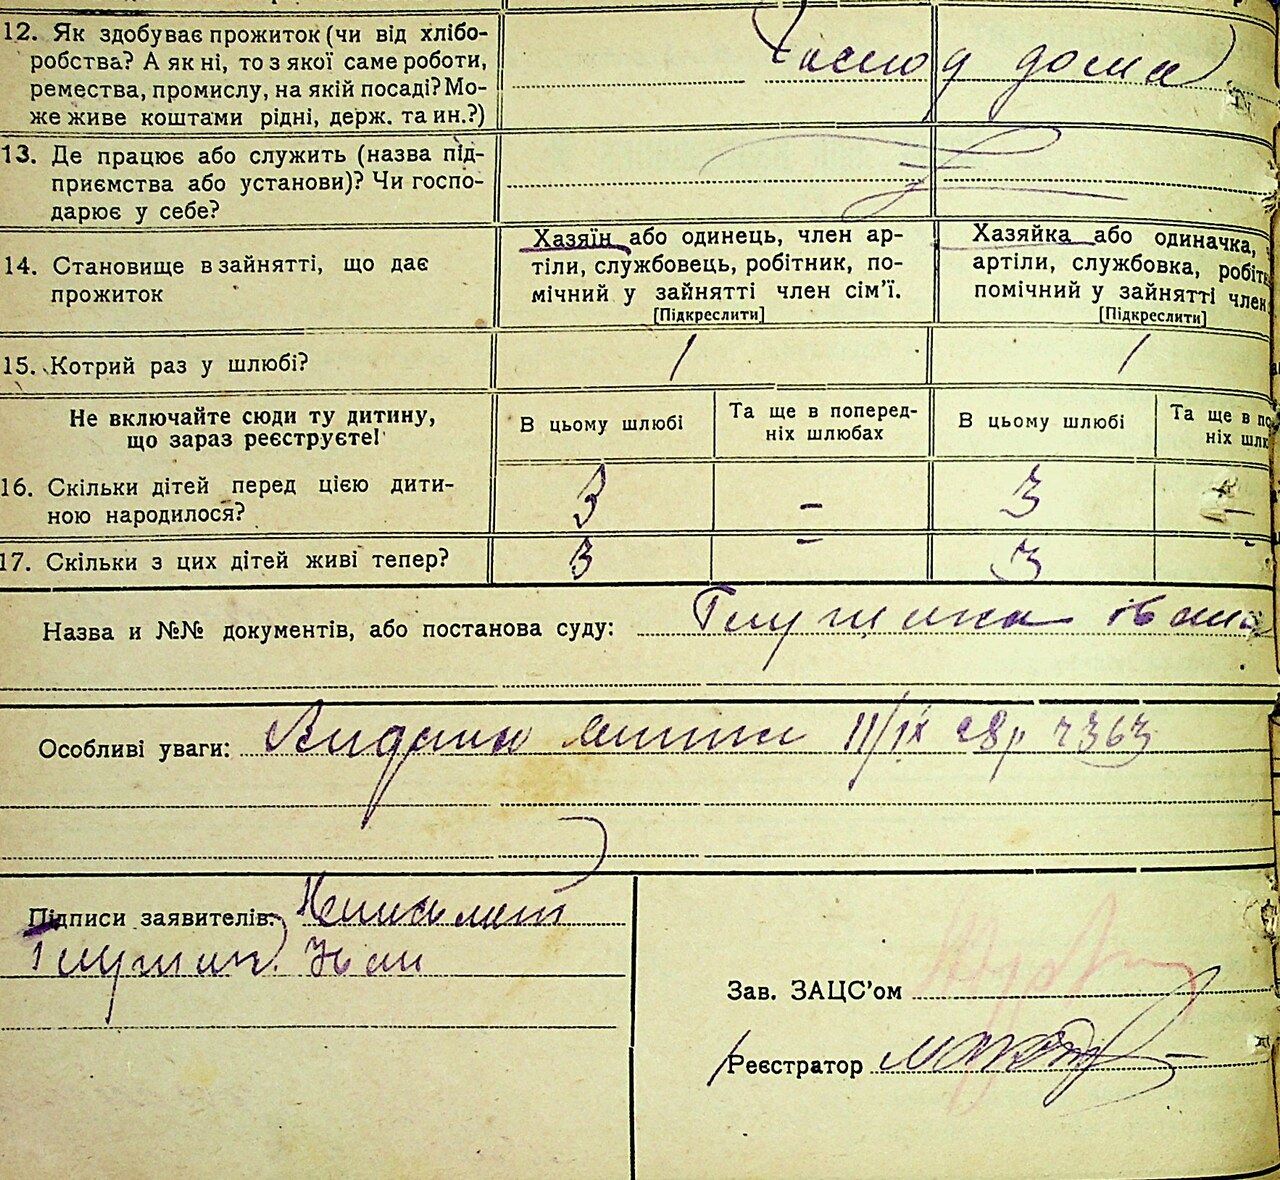 12. Як здобуває прожиток (чи від хлібо-
робства? А як ні, то з якої саме роботи,
ремества, промислу, на якій посаді? Мо-
же живе коштами рідні, держ. та ин.?)
дома
13. Де працює або служить (назва під-
приємства або установи)? Чи госпо-
дарює у себе?
14. Становище в зайнятті, що дає
прожиток
Хазяїн або одинець, член ар-
тіли, службовець, робітник, по-
мічний у зайнятті член сім'ї.
[Підкреслити]
Хазяйка або одиначка,
артіли, службовка, робітн
помічний у зайнятті член
[Підкреслити]
15. Котрий раз у шлюбі?
1
1
Не включайте сюди ту дитину,
що зараз реєструєте!
В цьому шлюбі
Та ще в поперед-
ніх шлюбах
В цьому шлюбі
Та ще в по
ніх шлю
16. Скільки дітей перед цією дити-
ною народилося?
3
–
3
–
17. Скільки з цих дітей живі тепер?
3
–
3
-
Назва и №№ документів, або постанова суду:
Особливі уваги: Видано 11/IX 28р 7363
Підписи заявителів:
Зав. ЗАЦС'ом
Реєстратор